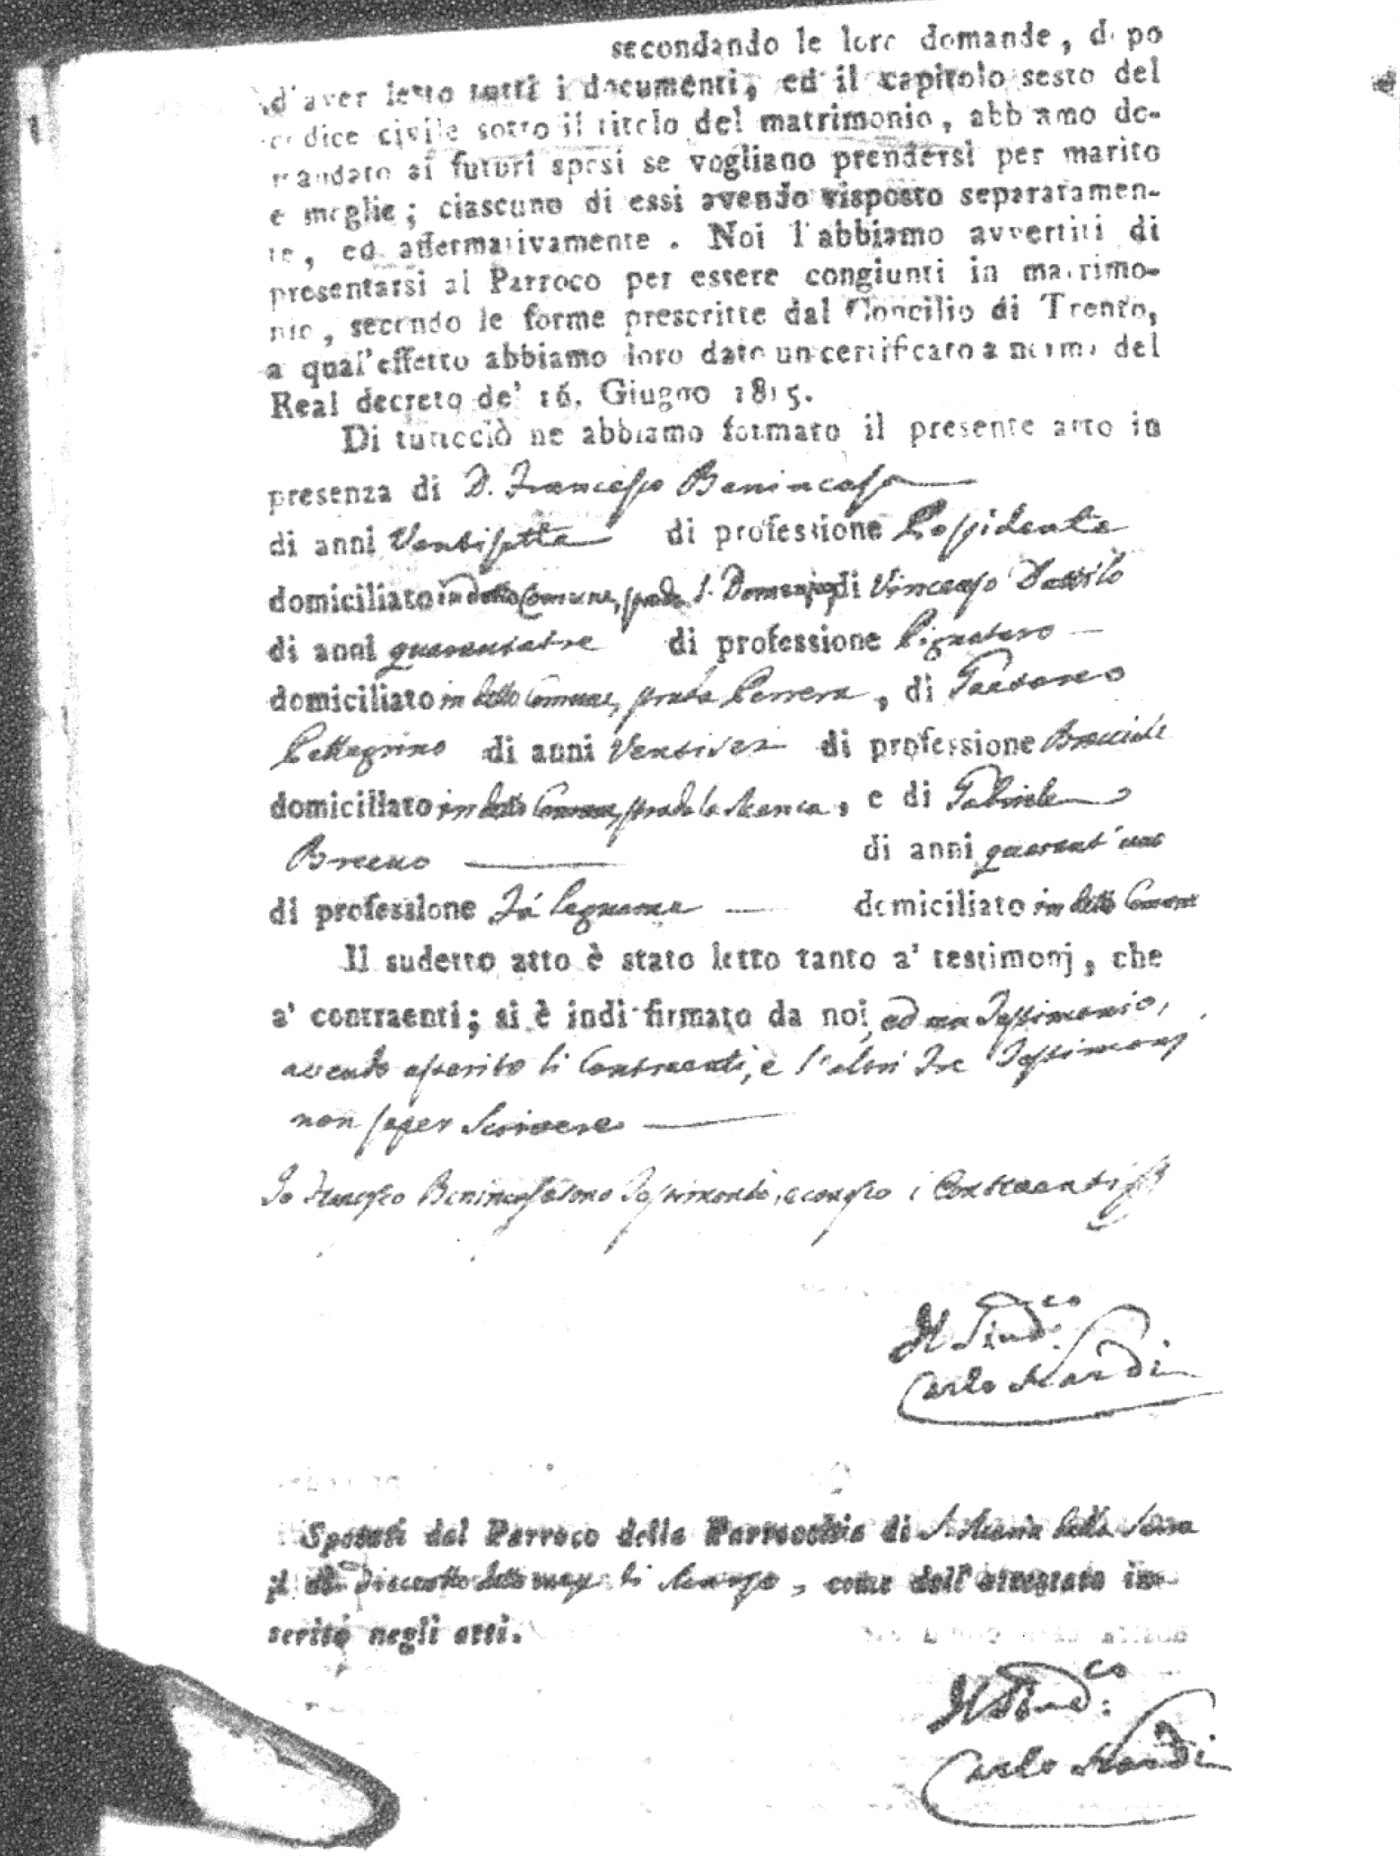 secondando le loro domande, dopo
d'aver letto tutti i documenti, ed il capitolo sesto del
codice civile sotto il titolo del matrimonio, abbiamo do-
mandato ai futuri sposi se vogliano prendersi per marito
e moglie; ciascuno di essi avendo risposto separatamen-
te, ed affermativamente. Noi l'abbiamo avvertiti di
presentarsi al Parroco per essere congiunti in matrimo-
nio, secondo le forme prescritte dal Concilio di Trento,
a qual'effetto abbiamo loro dato un certificato a norma del
Real decreto de' 16. Giugno 1815.
Di tuttociò ne abbiamo formato il presente atto in
presenza di D. Francesco Benincasa
di anni Ventisette di professione Possidente
domiciliato in detto Comune, strada S. Domenico, di Vincenzo Dattilo
di anni quarantatre di professione Pignataro
domiciliato in detto Comune, strada , di Gaetano
Pellegrino di anni Ventisei di professione Bracciale
domiciliato in detto Comune, strada la , e di Gabriele
Bruno di anni quarant'uno
di professione Falegname domiciliato in detto Comune
Il sudetto atto è stato letto tanto a' testimonj, che
a' contraenti; si è indi firmato da noi, ed un Testimonio,
avendo asserito li Contraenti, e l'altri Tre Testimonj
non saper Scrivere
Io Francesco Benincasa sono Testimonio, e conosco i Contraenti
Il Sind.co
Carlo Nardi
Sposati dal Parroco della Parrocchia di S. Maria della Serra
il dì Dieciotto detto mese di Marzo, come dall'attestato in-
serito negli atti.
Il Sind.co
Carlo Nardi